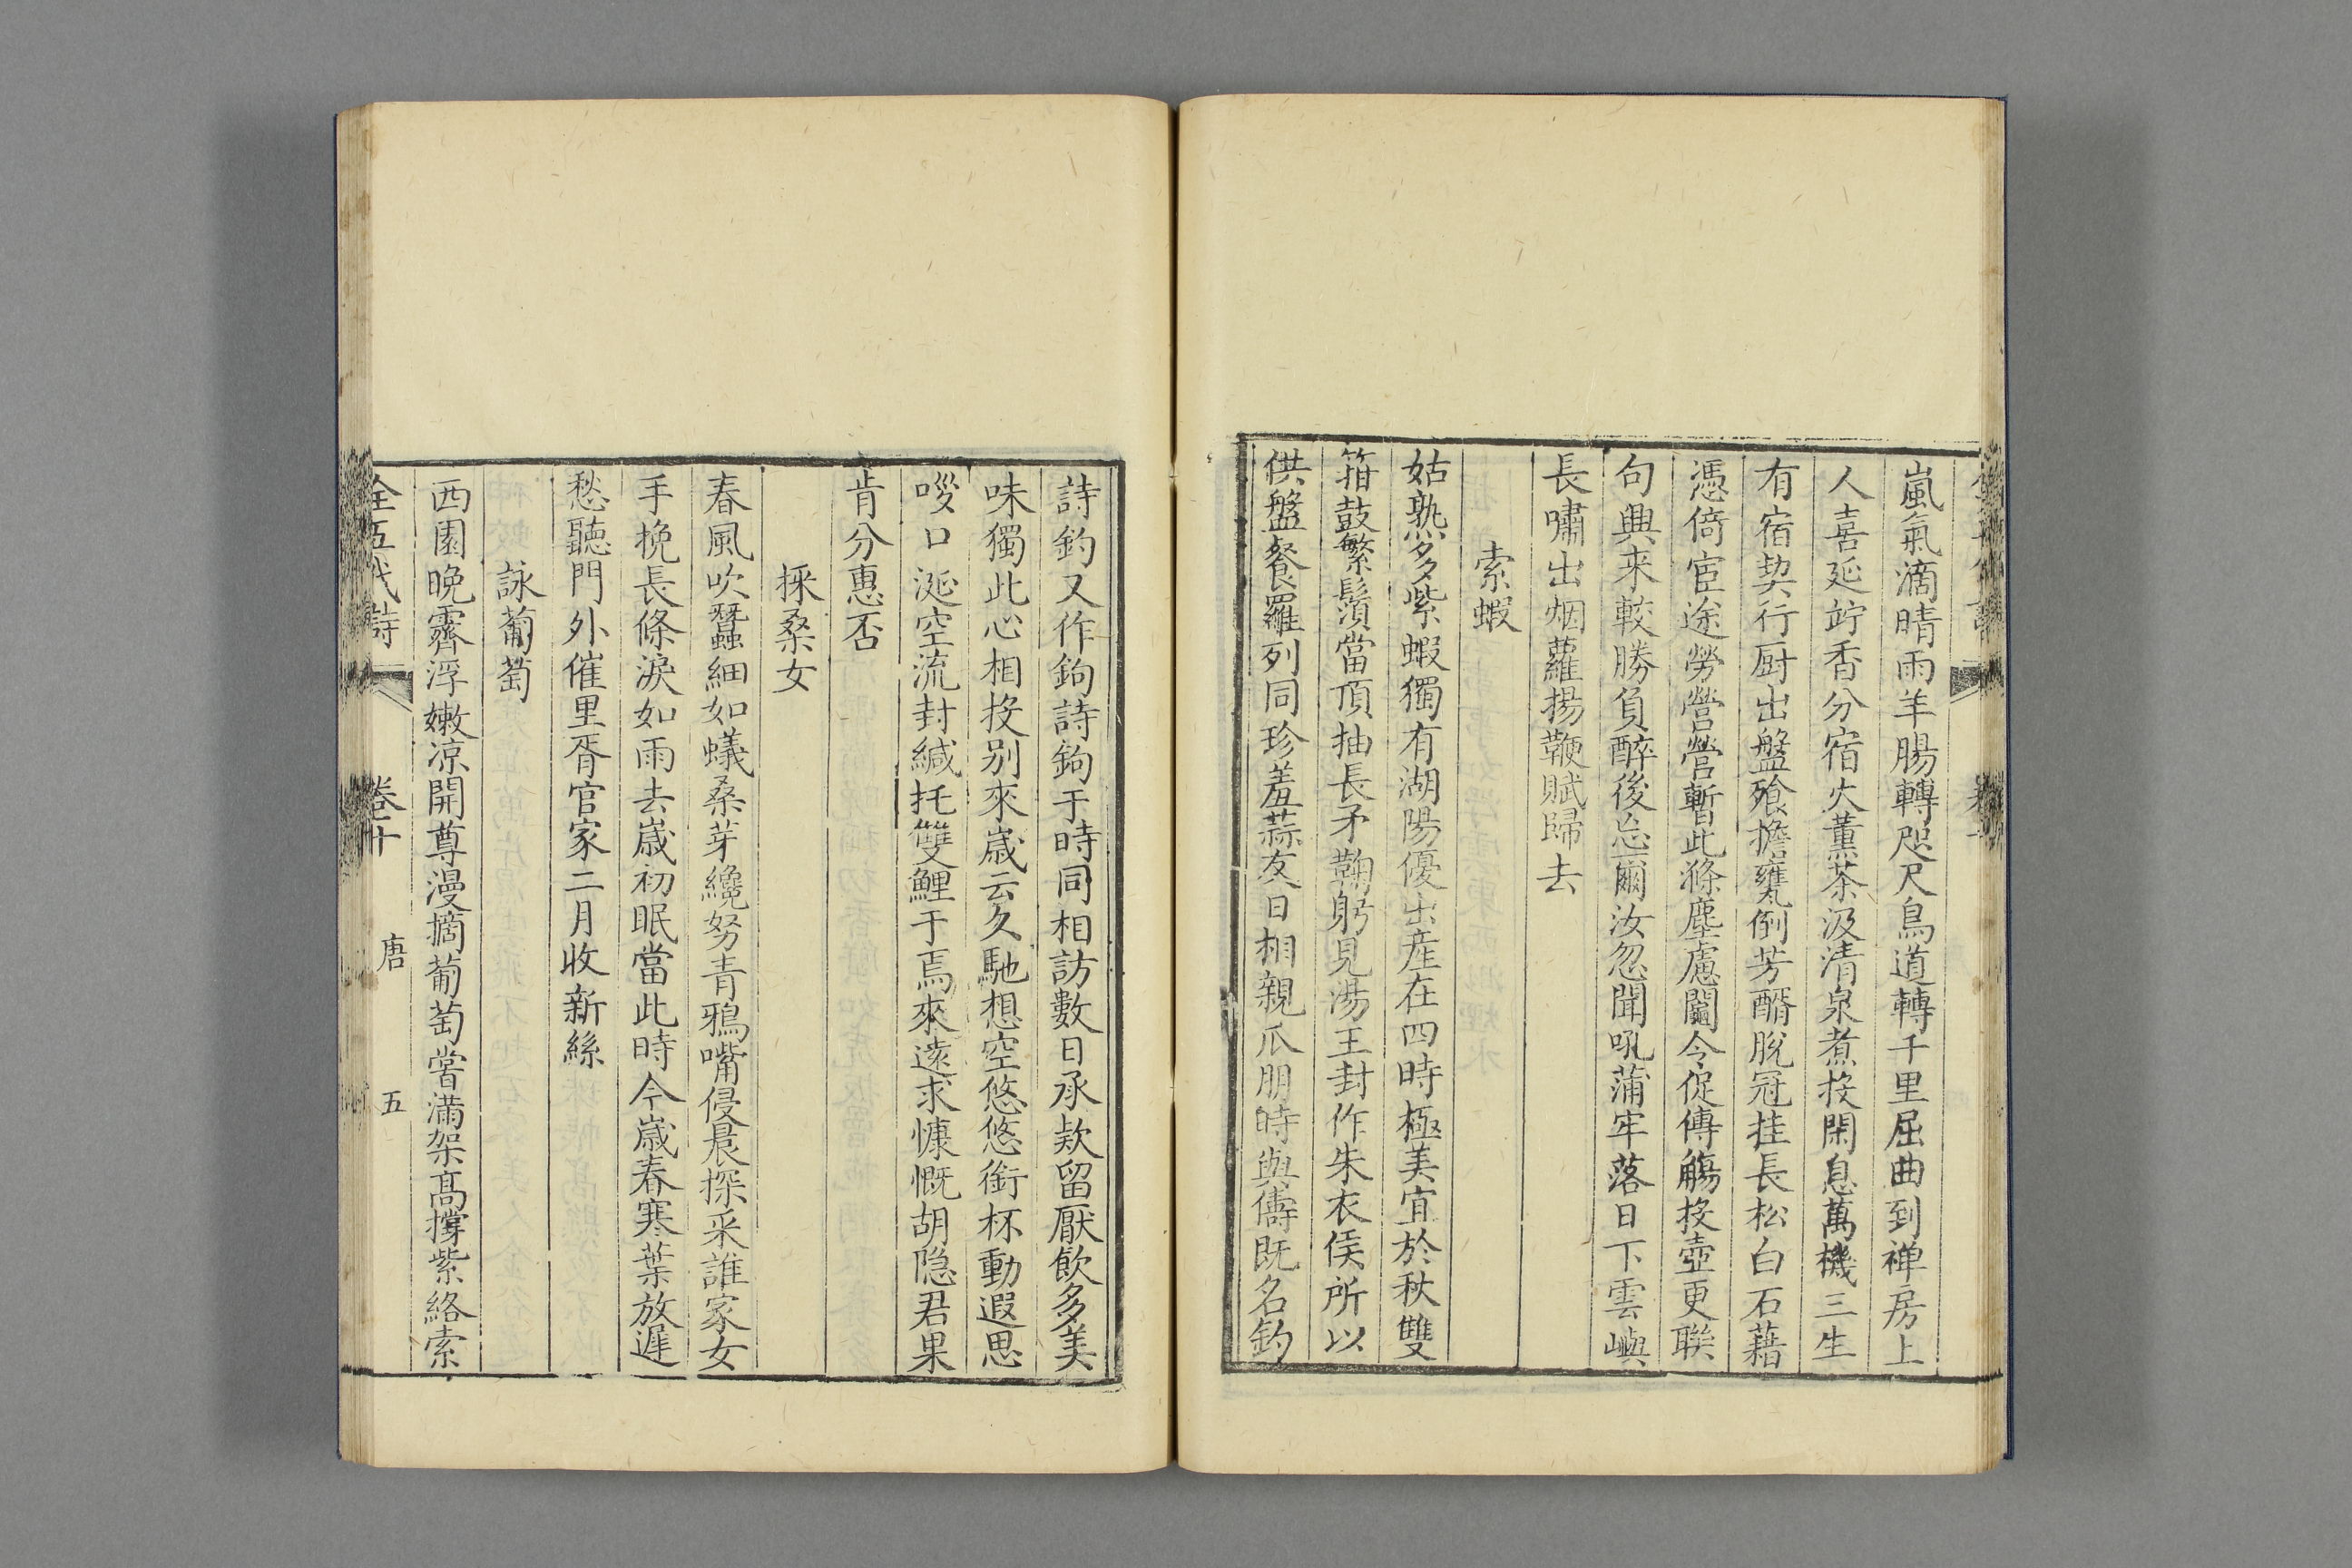 嵐氣滴晴雨羊腸轉咫尺鳥道轉千里屈曲到禅房上
人喜延竚香分宿火薰茶汲清泉煮投閑息萬機三生
有宿契行厨出盤飱擔甕倒芳醑脫冠挂長松白石藉
憑倚宦途勞營營暫此滌塵慮閫令促傳觴投壺更聯
句興来較勝負醉後忘爾汝忽聞吼蒲牢落日下雲嶼
長嘯出烟蘿揚鞭賦歸去
索蝦
姑熟多紫蝦獨有湖陽優出産在四時極美宜於秋雙
箝鼓繁鬚當頂抽長矛鞠躬見湯王封作朱衣侯所以
供盤餐羅列同珍羞蒜友日相親瓜朋時與儔既名釣
詩釣又作鉤詩鉤于時同相訪數日承欵留厭飲多美
味獨此心相投别來嵗云久馳想空悠悠銜杯動遐思
啖口涎空流封緘托雙鯉于焉來遠求慷慨胡隐君果
肯分惠否
採桑女
春風吹蠶細如蟻桑芽纔努青鴉嘴侵晨探采誰家女
手挽長條淚如雨去嵗初眠當此時今嵗春寒葉放遲
愁聽門外催里胥官家二月收新絲
詠葡萄
西園晩霽浮嫩凉開尊漫摘葡萄嘗滿架髙撐紫絡索
全五代詩 卷十 唐 五